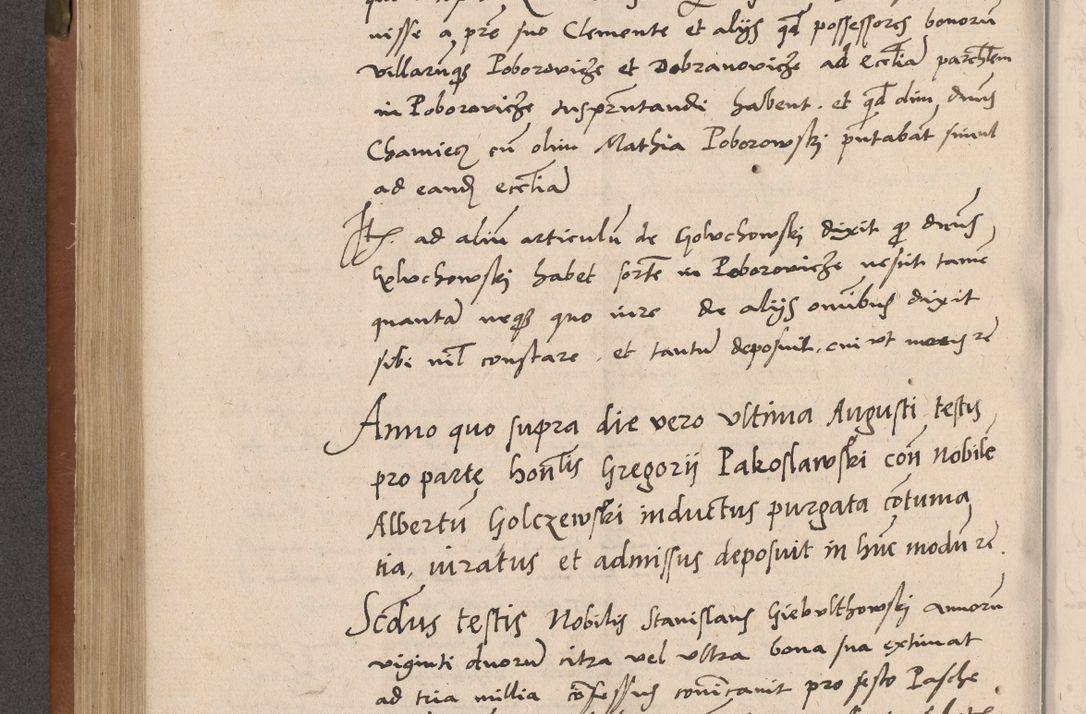 nisse a pre suo Clemente et alijs qd possessores bonoru
villaruqz Poborovicze et Dobranovicze ad eccłia parchłem
in Poborovicze inspntandi habent. et qd olim dnus
Chamiecz cu olim Mathia Poborowskj pntabat simul
ad eand eccłia
It. ad aliu articulu de Golvchowskj dixit q dnus
Golvchowskj habet sorte in Poborovicze nescit tame
quanta neqz quo iure de alijs omibus dixit
sibi nił constare. et tantu deposuit. cui vt moris re
Anno quo supra die vero vltima Augusti testis
pro parte honłis Gregorij Pakoslawski con Nobile
Albertu Golczewski inductus purgata cotuma
tia, iuratus et admissus deposuit in huc modu re.
Scdus testis Nobilis Stanislaus Giebvlthowskj annoru
viginti duoru citra vel vltra bona sua extimat
ad tria millia cofessus comicauit pro festo Pasche